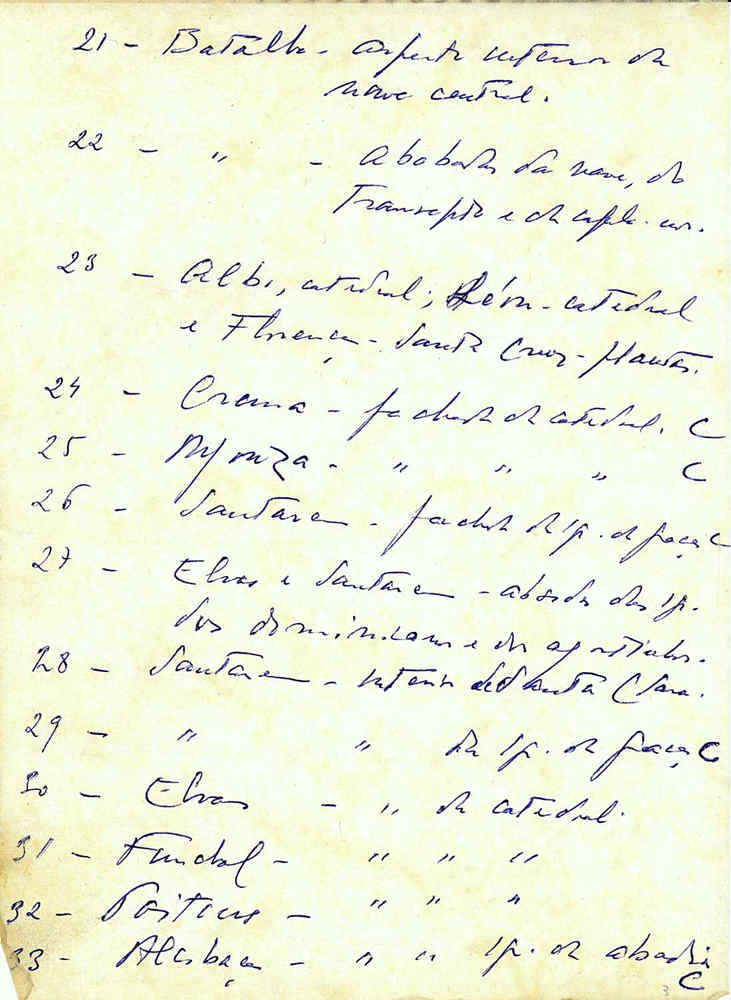 21 - Batalha - aspecto interior da
nave central.
22 - " - Abobodas da nave, do
Transepto e da capela-mor.
23 - Albi, catedral; Léon - catedral
e Florença - Santa Cruz - plantas.
24 - Crema - fachada da catedral. C
25 - Monza - " " " C
26 - Santarem - fachada da ig. da graça C
27 - Elvas e Santarem - absides das ig.
dos dominicanos e dos agostinhos.
28 - Santarem - interior de Santa Clara.
29 - " " da ig. da graça C
30 - Elvas - " da catedral.
31 - Funchal - " " "
32 - Poitiers - " " "
33 - Alcobaça - " " ig. da abadia
C